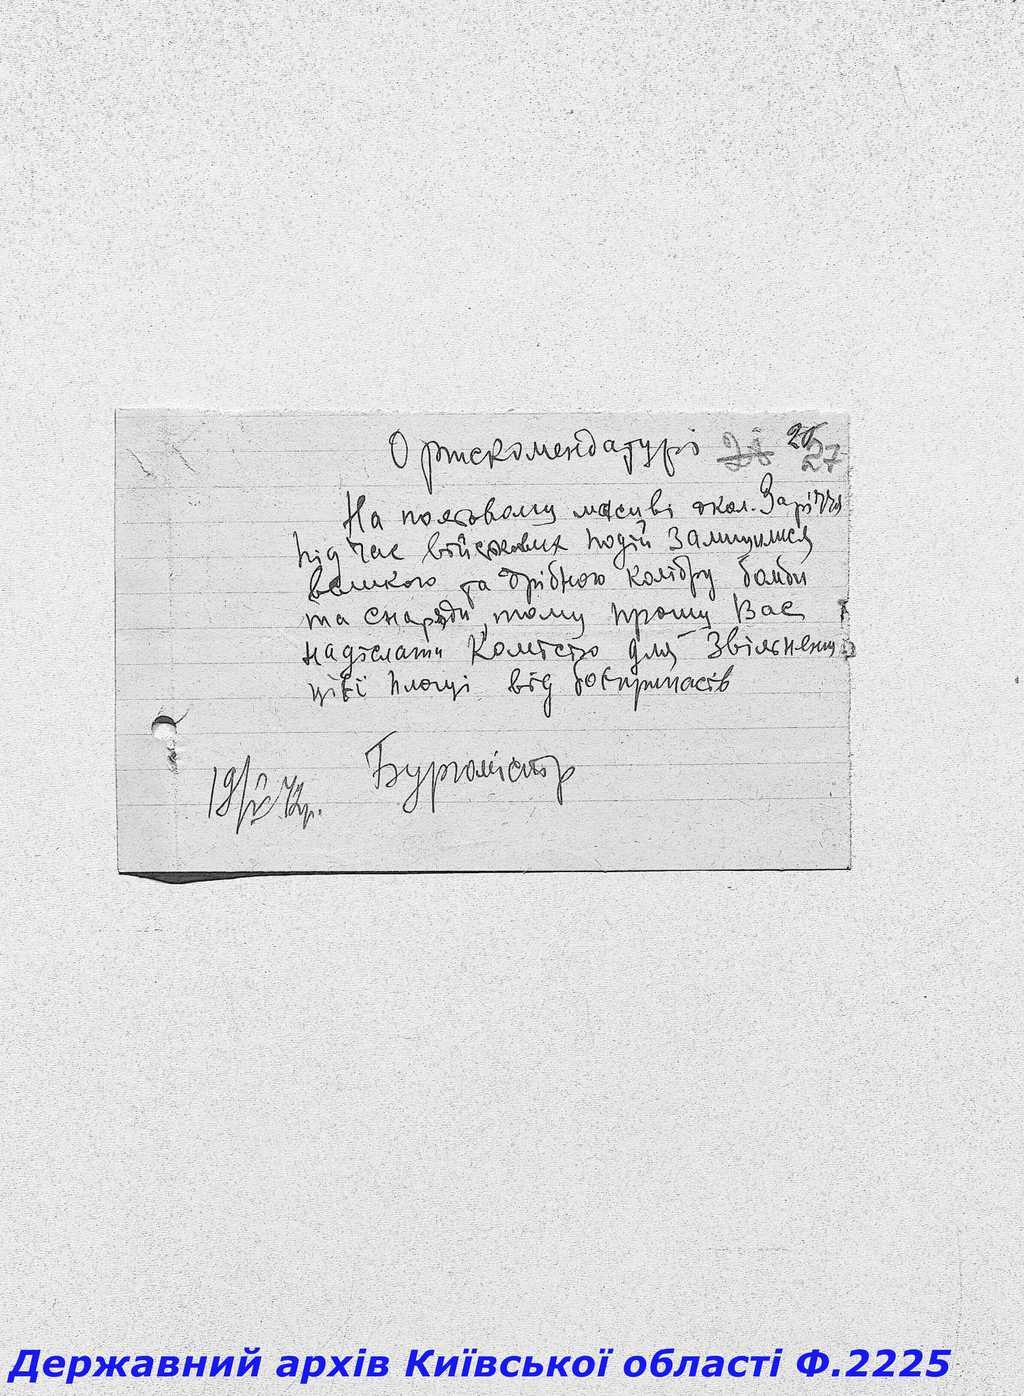 Ортскомендатурі 28 26 27
На польовому масиві окол. Заріччя
під час військових подій залишилися
великого та дрібного калібру бомби
та снаряди, тому прошу Вас
надіслати Комісію для звільнення
цієї площі від боєприпасів
Бургомістр
19/IV 42р.
Державний архів Київської області Ф.2225